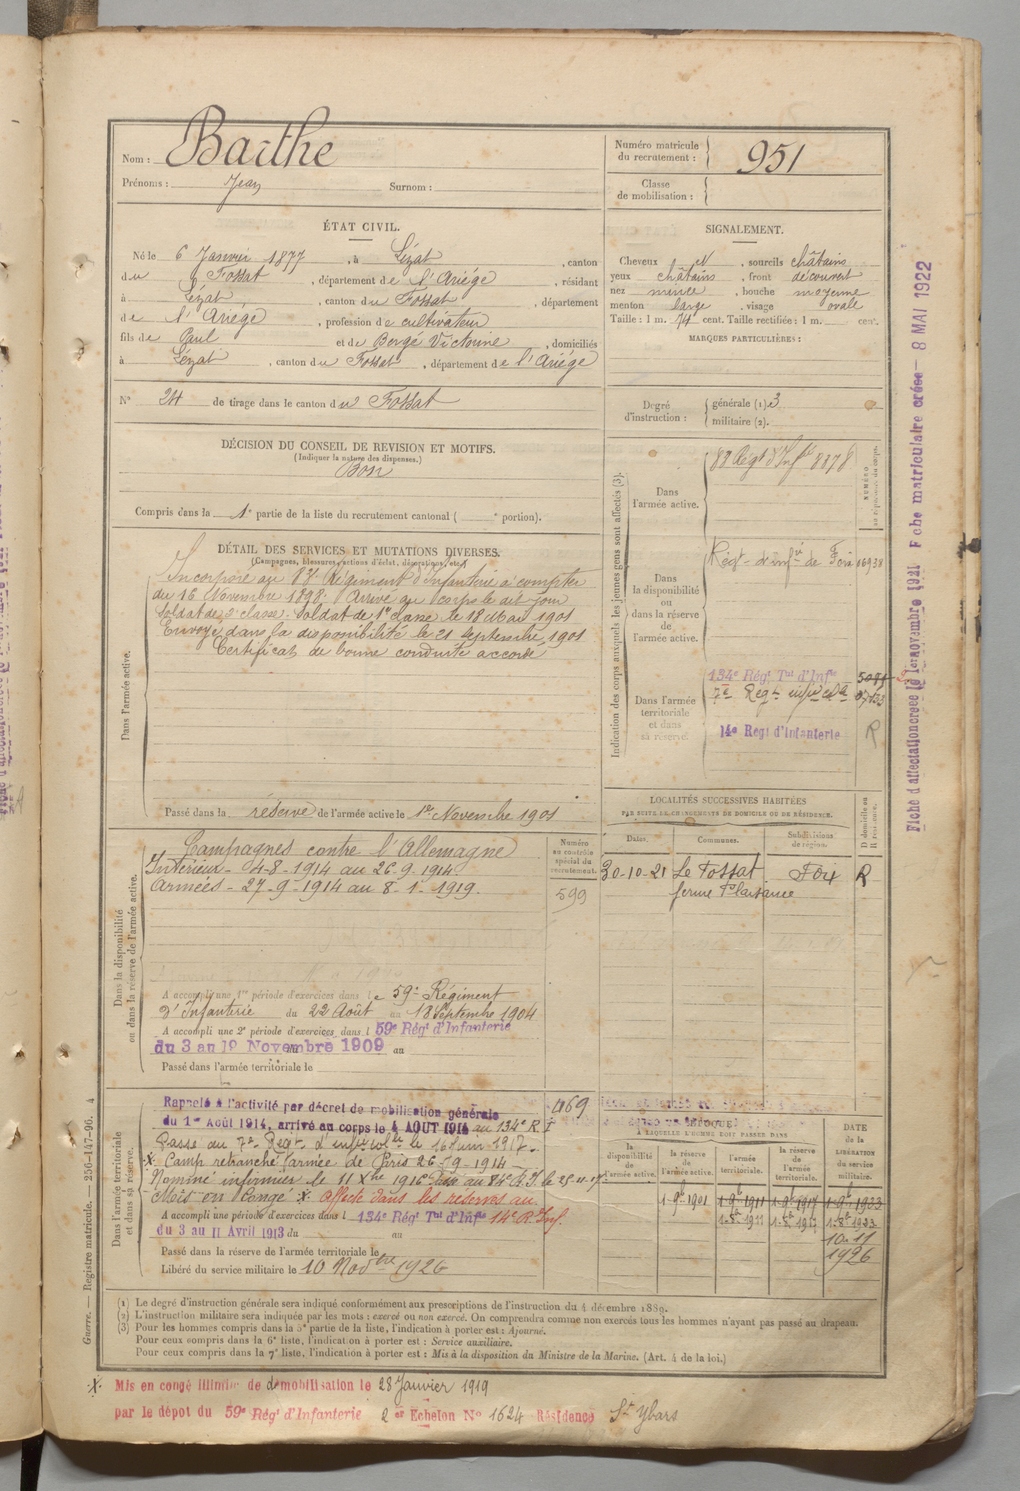 Nom : Barthe
Prénoms : Jean Surnom :
Numéro matricule du recrutement : 951
Classe de mobilisation :
ÉTAT CIVIL.
Né le 6 Janvier 1877, à Lézat, canton
du Fossat, département de l'Ariège, résidant
à Lézat, canton du Fossat, département
de l'Ariège, profession de cultivateur
fils de Paul et de Bergé Victorine, domiciliés
à Lézat, canton du Fossat, département de l'Ariège
N° 24 de tirage dans le canton du Fossat
SIGNALEMENT.
Cheveux N, sourcils châtains
yeux châtains, front découvert
nez mince, bouche moyenne
menton large, visage ovale
Taille : 1 m. 74 cent. Taille rectifiée : 1 m. cent.
MARQUES PARTICULIÈRES :
Degré d'instruction : générale (1) 3
militaire (2).
DÉCISION DU CONSEIL DE REVISION ET MOTIFS.
(Indiquer la nature des dispenses.)
Bon
Compris dans la 1e partie de la liste du recrutement cantonal ( e portion).
DÉTAIL DES SERVICES ET MUTATIONS DIVERSES.
(Campagnes, blessures, actions d'éclat, décorations, etc.)
Dans l'armée active.
Incorporé au 83e Régiment d'Infanterie à compter
du 16 Novembre 1898. Arrivé au corps le dit jour
soldat de 2e classe. Soldat de 1re classe le 18 Mai 1901
Envoyé dans la disponibilité le 21 Septembre 1901
Certificat de bonne conduite accordé
Passé dans la réserve de l'armée active le 1er Novembre 1901
Indication des corps auxquels les jeunes gens sont affectés (3).
NUMÉRO
Dans l'armée active.
83 Régt d'Infie 8378
Dans la disponibilité ou dans la réserve de l'armée active.
Régt d'infie de Foix 16938
Dans l'armée territoriale et dans sa réserve.
134e Régt Tal d'Infie
7e Régt
14e Régt d'Infanterie R
LOCALITÉS SUCCESSIVES HABITÉES
PAR SUITE DE CHANGEMENTS DE DOMICILE OU DE RÉSIDENCE.
Dates. Communes. Subdivisions de région. D domicile ou R résidence.
30-10-21 Le Fossat Foix R
ferme Plaisance
Dans la disponibilité ou dans la réserve de l'armée active.
Campagnes contre l'Allemagne
Intérieur - 4-8-1914 au 26-9-1914
Armées - 27-9-1914 au 8-1-1919.
Numéro au contrôle spécial du recrutement.
599
A accompli une 1re période d'exercices dans le 59e Régiment
d'Infanterie du 22 Août au 18 Septembre 1904
A accompli une 2e période d'exercices dans l 59e Régt d'Infanterie
du 3 au 19 Novembre 1909 au
Passé dans l'armée territoriale le
Dans l'armée territoriale et dans sa réserve.
Rappelé à l'activité par décret de mobilisation générale
du 1er Août 1914, arrivé au corps le 4 AOUT 1914 au 134e R I
469
Passé au 7e Régt le 16 Juin 1917.
X Camp retranché armée de Paris 26-9-1914
Nommé infirmier le 11 Xbre 1916 Passé au 84e R.I. le 25-11-17.
Mis en Congé X affecté dans les réserves au
A accompli une période d'exercices dans l 134e Régt Tal d'Infie 14e R. Inf.
du 3 au 11 Avril 1913 du au
Passé dans la réserve de l'armée territoriale le
Libéré du service militaire le 10 Novbre 1926
ÉPOQUE
À LAQUELLE L'HOMME DOIT PASSER DANS
la disponibilité de l'armée active. la réserve de l'armée active. l'armée territoriale. la réserve de l'armée territoriale.
DATE de la LIBÉRATION du service militaire.
1-9bre 1901 1-9bre 1911 1-9bre 1917 1-9bre 1923
1-8bre 1911 1-8bre 1917 1-8bre 1923
10-11
1926
(1) Le degré d'instruction générale sera indiqué conformément aux prescriptions de l'instruction du 4 décembre 1889.
(2) L'instruction militaire sera indiquée par les mots : exercé ou non exercé. On comprendra comme non exercés tous les hommes n'ayant pas passé au drapeau.
(3) Pour les hommes compris dans la 5e partie de la liste, l'indication à porter est : Ajourné.
Pour ceux compris dans la 6e liste, l'indication à porter est : Service auxiliaire.
Pour ceux compris dans la 7e liste, l'indication à porter est : Mis à la disposition du Ministre de la Marine. (Art. 4 de la loi.)
X Mis en congé illimité de démobilisation le 28 Janvier 1919
par le dépot du 59e Régt d'Infanterie 2 er Echelon No 1624 Résidence St Ybars
Guerre. — Registre matricule. — 256-147-96. 4
Fiche d'affectation créée le 1er novembre 1921 Fiche matriculaire créée — 8 MAI 1922